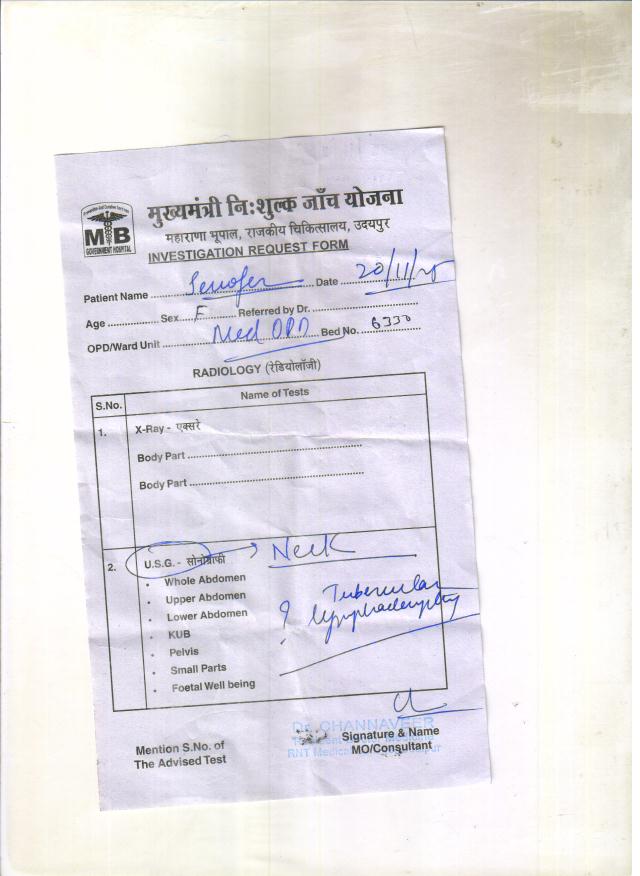 मुख्यमंत्री निःशुल्क जाँच योजना
महाराणा भूपाल, राजकीय चिकित्सालय, उदयपुर
MB
GOVERNMENT HOSPITAL
INVESTIGATION REQUEST FORM
Patient Name ...... Date 20/11/
Age ...... Sex F Referred by Dr. ......
OPD/Ward Unit Med OPD Bed No. 6330
RADIOLOGY (रेडियोलॉजी)
S.No. Name of Tests
1. X-Ray - एक्सरे
Body Part ......
Body Part ......
2. U.S.G. - सोनोग्राफी Neck
• Whole Abdomen
• Upper Abdomen
• Lower Abdomen
? Tubercular
lymphadenopathy
• KUB
• Pelvis
• Small Parts
• Foetal Well being
Dr. CHANNAVEER
RNT Medical
Mention S.No. of
The Advised Test
Signature & Name
MO/Consultant